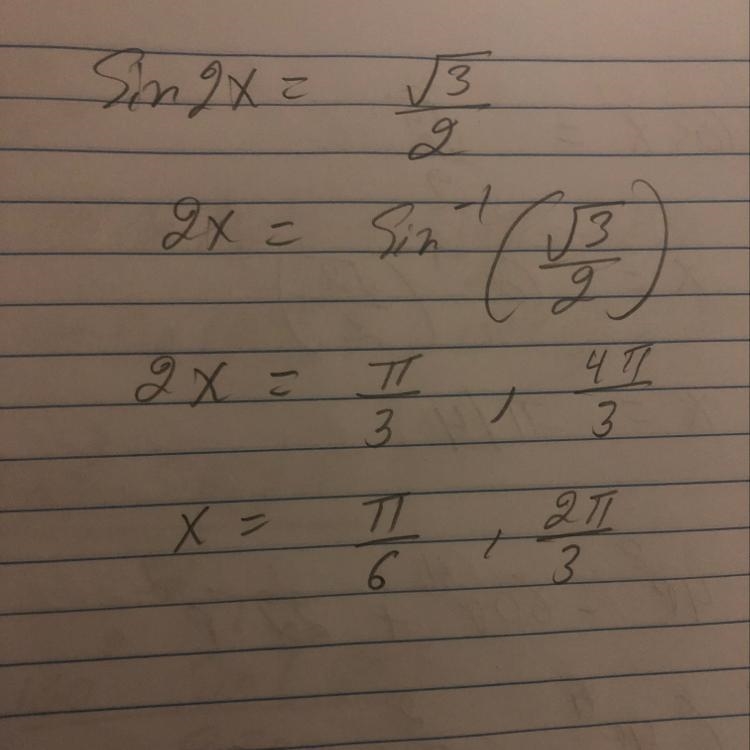 Sin 2x = √3/2
2x = Sin⁻¹ (√3/2)
2x = π/3 , 4π/3
x = π/6 , 2π/3